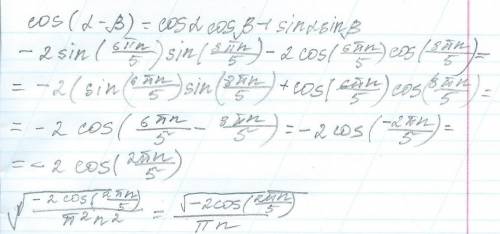 cos(α-β)=cosα cosβ+sinα sinβ
-2sin(6πn/5)sin(8πn/5)-2cos(6πn/5)cos(8πn/5)=
=-2(sin(6πn/5)sin(8πn/5)+cos(6πn/5)cos(8πn/5)=
=-2cos(6πn/5-8πn/5)=-2cos(-2πn/5)=
=-2cos(2πn/5)
√(-2cos(2πn/5)/π²n²)=√(-2cos(2πn/5))/πn